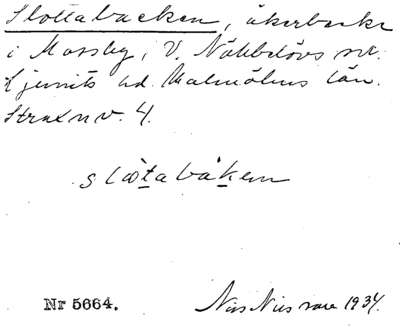 Slottabacken, åkerbacke
i Mossby, V. Nöbbelövs sn.
Ljunits hd. Malmöhus län.
Strax n v. 4.
slåtabåken
Nr 5664. Nils Nilsson 1934.